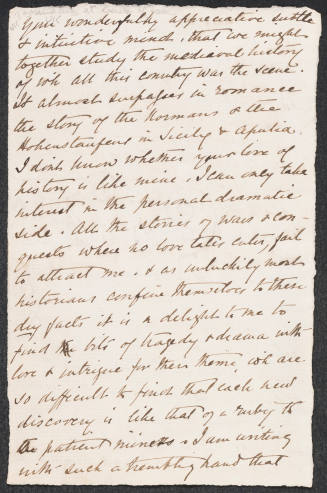 Your wonderfully appreciative subtle
& intuitive mind, that we might
together study the mediæval history
of wh all this country was the scene.
It almost surpasses in romance
the story of the Normans & the
Hohenstaufens in Sicily & Apulia.
I don't know whether your love of
history is like mine. I can only take
interest in the personal dramatic
side. All the stories of wars & con-
quests where no love tales enter, fail
to attract me. & as unluckily most
historians confine themselves to these
dry facts it is a delight to me to
find the bits of tragedy & drama with
love & intrigue for their theme, wh are
so difficult to find that each new
discovery is like that of a ruby to
the patient miners. I am writing
with such a trembling hand that